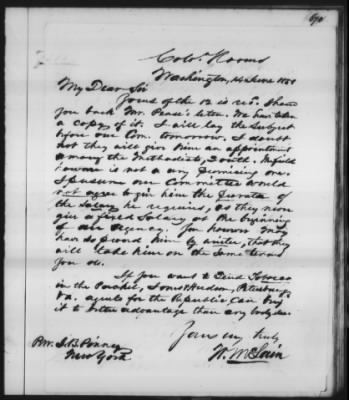 Colo. Rooms
Washington, 14 June 1851
My Dear Sir
Yours of the 12 is recd. I have
you back Mr. Pease's letter. We have taken
a copy of it. I will lay the subject
before our Com. tomorrow. I doubt
not they will give him an appointment
among the Methodists, South. The field
however is not a very promising one.
I presume our Committee would
not agree to give him the
the salary he requires, as they never
give a fixed salary at the beginning
of an agency. You however may
have so proved him that they
will take him on the same terms
you do.
If you want to send Tobacco
in the Packet, Jones & Hudson, Petersburg,
Va. agents for the Republic, can buy
it to better advantage than any body else.
Yours very truly
W. McLain
Rev. J. B. Pinney
New York